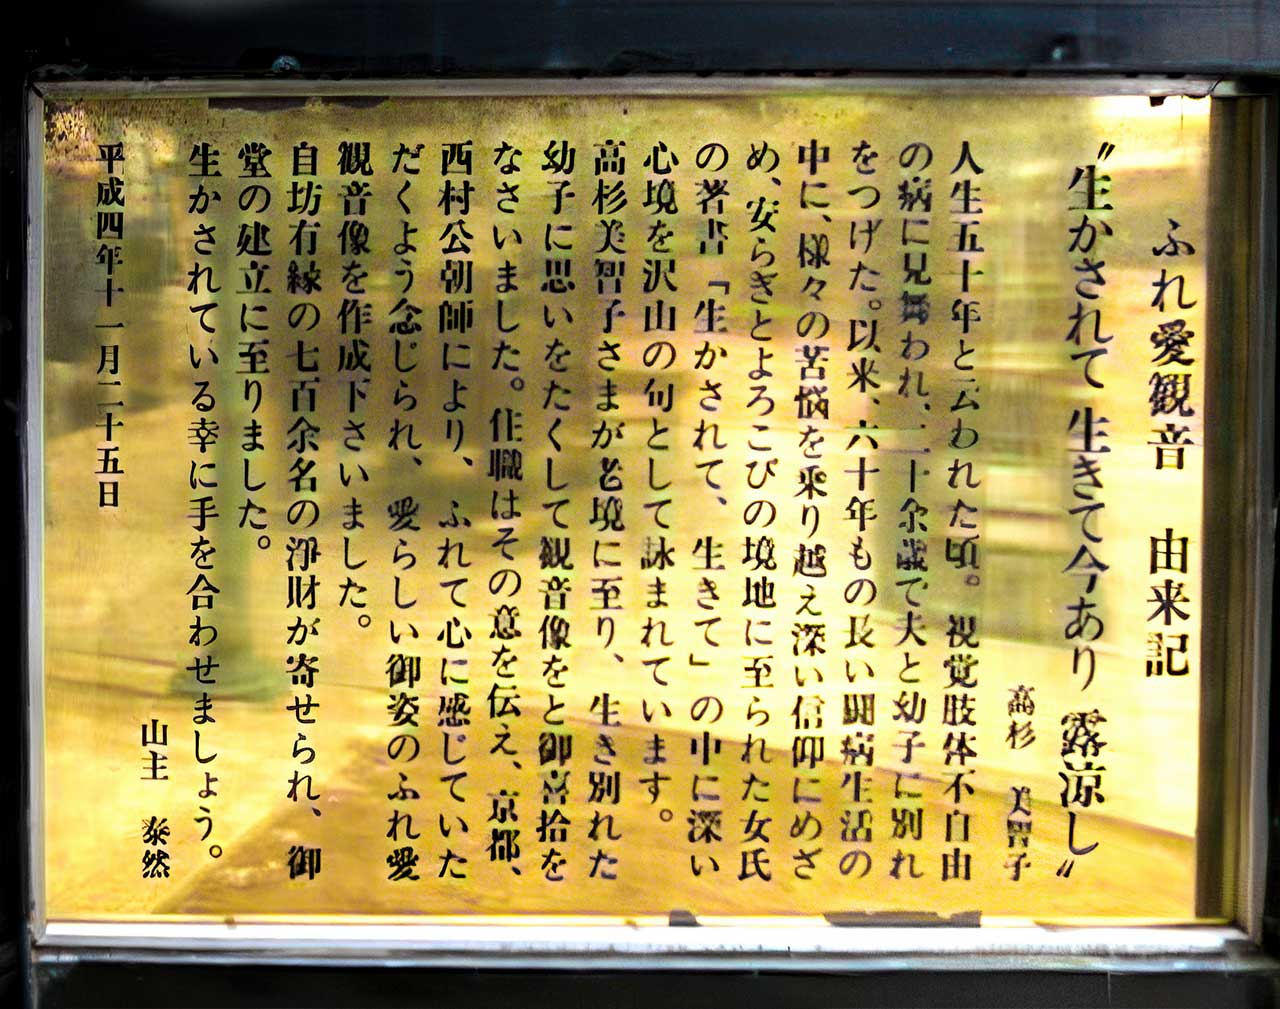 ふれ愛観音　由来記
〝生かされて 生きて今あり 露涼し〟
高杉　美智子
人生五十年と云われた頃。視覚肢体不自由
の病に見舞われ、二十余歳で夫と幼子に別れ
をつげた。以来、六十年もの長い闘病生活の
中に、様々の苦悩を乗り越え深い信仰にめざ
め、安らぎとよろこびの境地に至られた女氏
の著書「生かされて、生きて」の中に深い
心境を沢山の句として詠まれています。
高杉美智子さまが老境に至り、生き別れた
幼子に思いをたくして観音像をと御喜拾を
なさいました。住職はその意を伝え、京都、
西村公朝師により、ふれて心に感じていた
だくよう念じられ、愛らしい御姿のふれ愛
観音像を作成下さいました。
自坊有縁の七百余名の浄財が寄せられ、御
堂の建立に至りました。
生かされている幸に手を合わせましょう。
山主　泰然
平成四年十一月二十五日